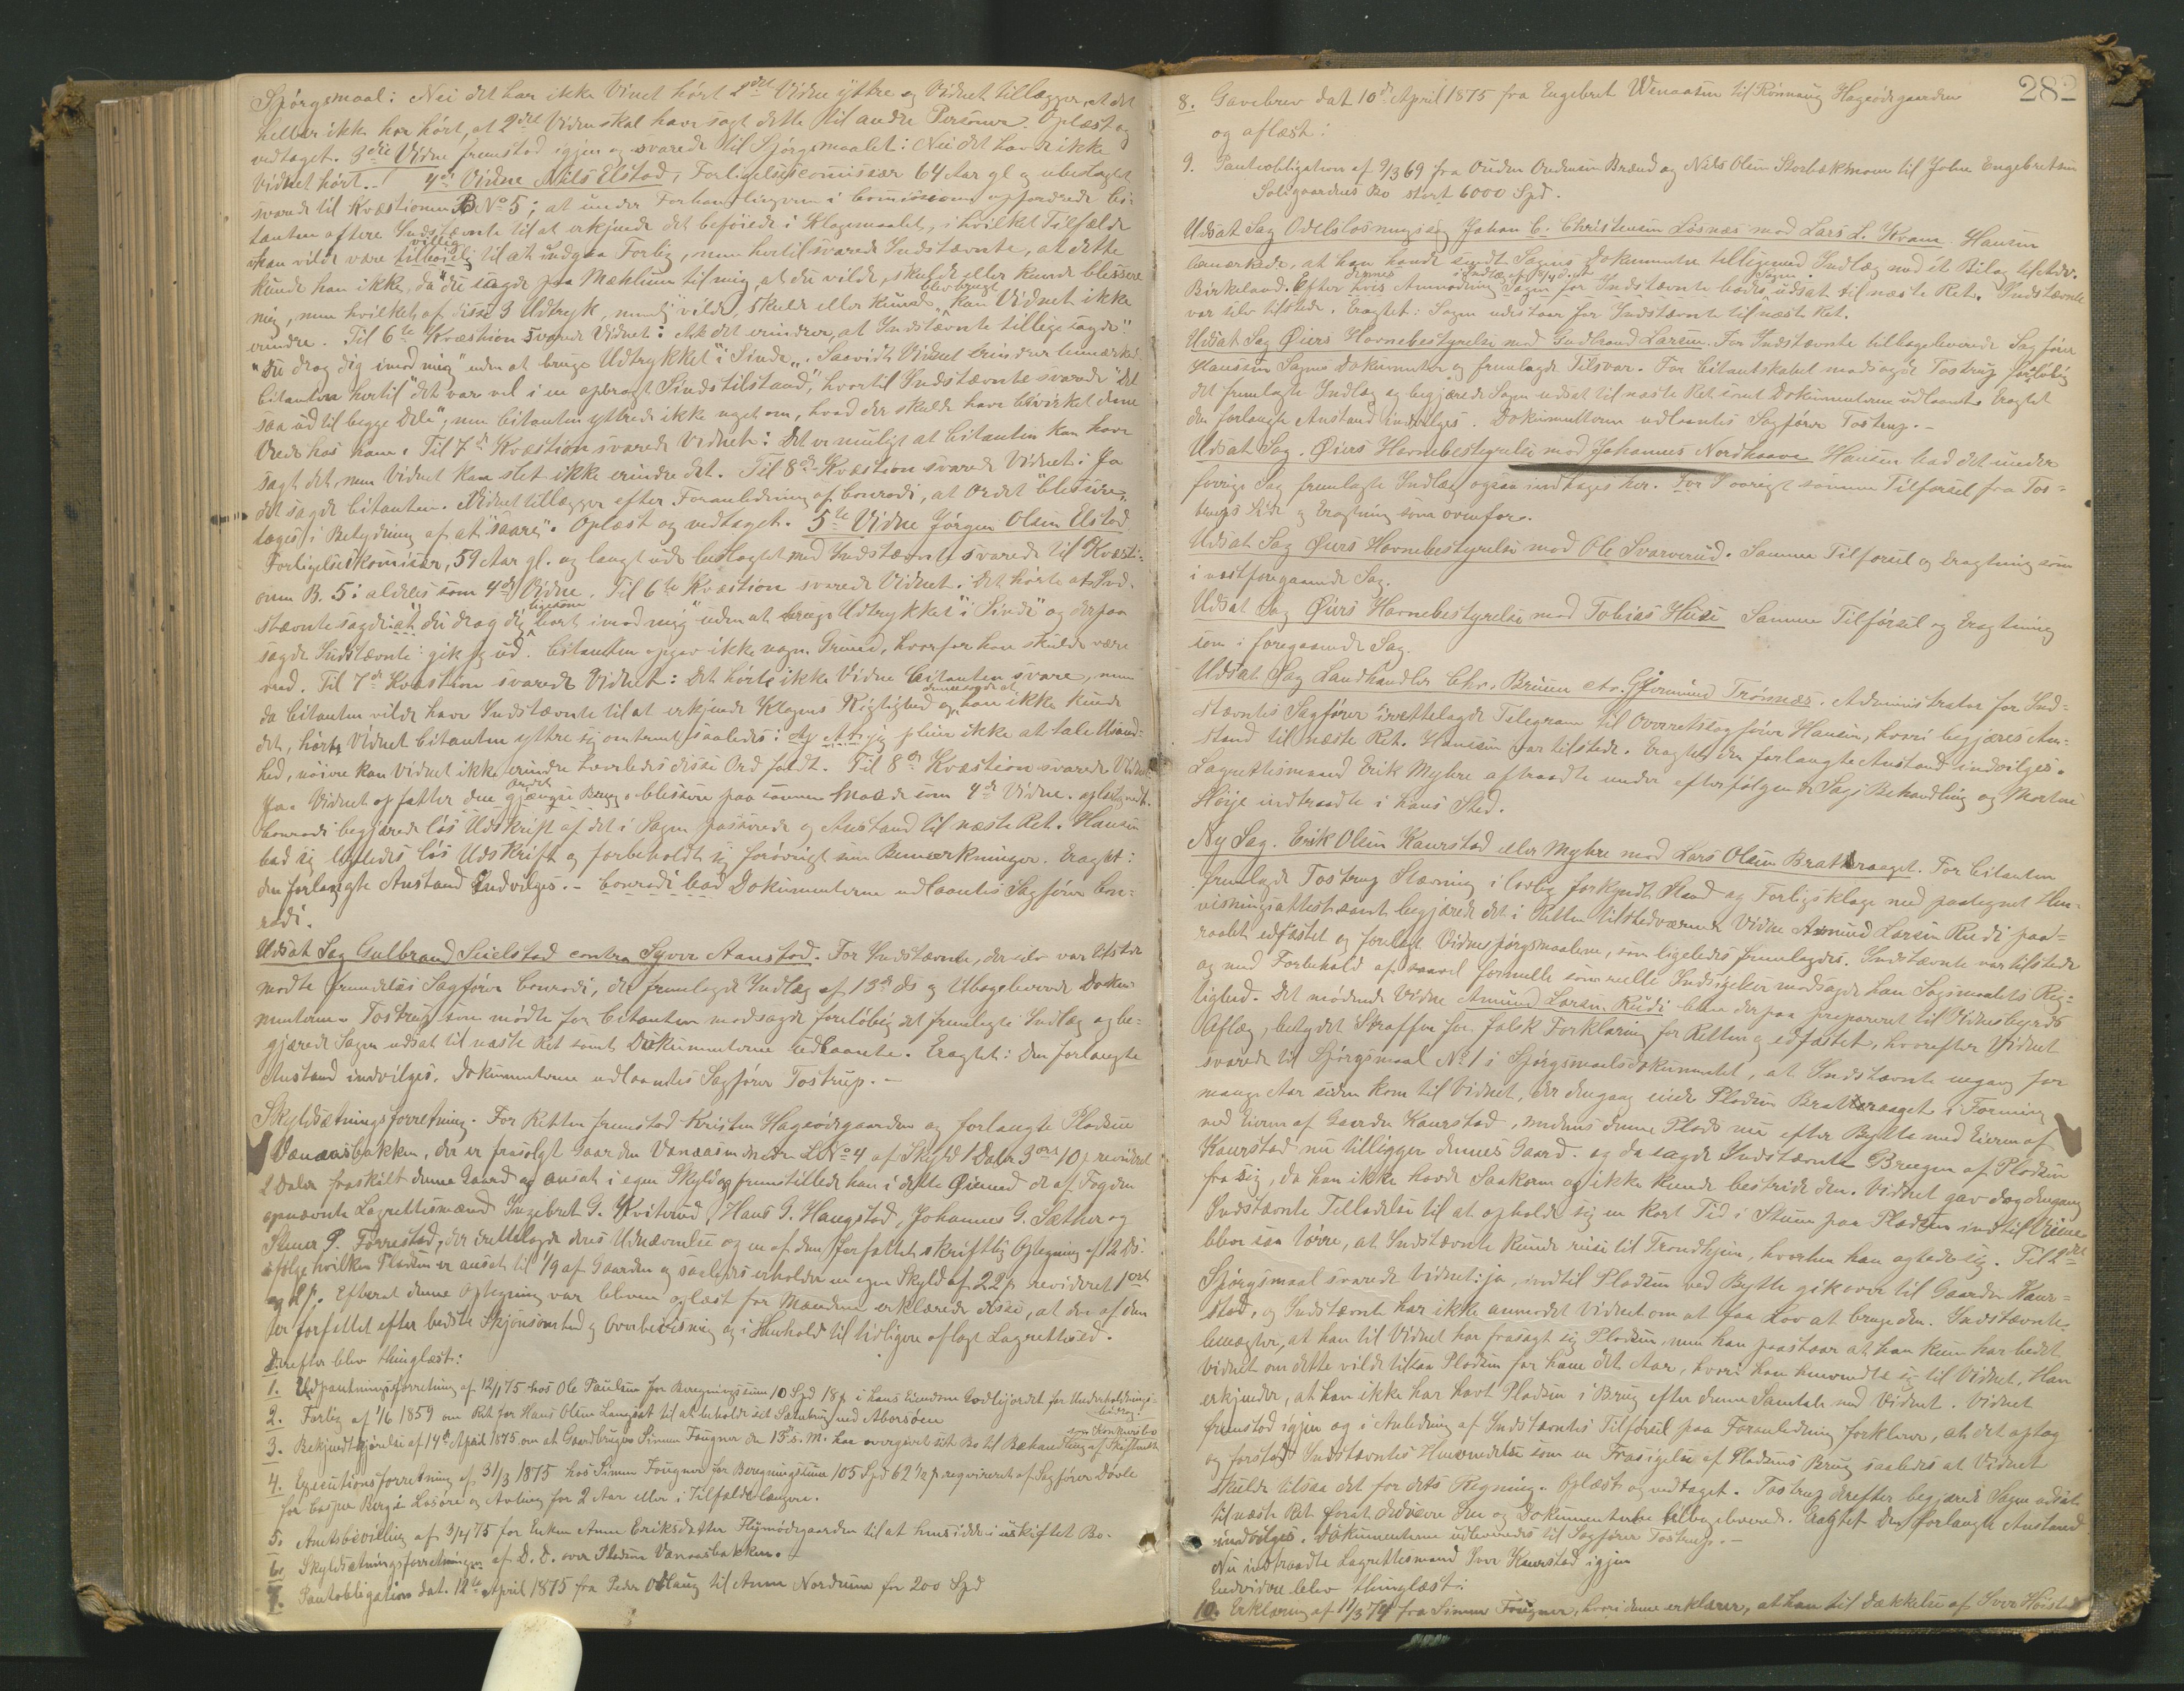 Spörgsmaal: Nei det har ikke Vinet hört 2det Vidne yttre og Vidnet tillægger, at det
heller ikke har hört, at 2det Vidne skal have sagt dette til andre Personer. Oplæst og
vedtaget. 3die Vidne fremstod igjen og svarede til Spörgsmaalet: Nei det havde ikke
Vidnet hört. 4de Vidne Nils Elstad, Forligelsescomissær 64 Aar gl og ubeslægtet
svarede til Kvæstionen B No 5; at under Forhandlingerne i Comissionen opfordrede Ci-
tanten oftere Indstævnte til at erkjende det beföiede i Klagemaalet, i hvilket Tilfælde
han vilde være villig til at indgaa Forlig, men hertil svarede Indstævnte, at dette
kunde han ikke, da "du sagde paa Mæhlum til mig, at du vilde, skulde eller kunde blessere
mig, men hvilket af disse 3 Udtryk, nemlig vilde, skulde eller kunde blev brugt kan Vidnet ikke
erindre. Til 6te Kvæstion svarede Vidnet: At det erindrer, at Indstævnte tillige sagde:
"du drog dig imod mig" uden at bruge Udtrykket "i Sinde". Saavidt Vidnet erindrer bemærked
Citanten hertil "det var vel i en opragt Sindstilstand", hvortil Indstævnte svarede "det
saa ud til begge Dele", men Citanten yttrede ikke noget om, hvad der skulde have bevirket denne
Vrede hos ham. Til 7de Kvæstion svarede Vidnet: Det er muligt at Citanten kan have
sagt det, men Vidnet kan slet ikke erindre det. Til 8de Kvæstion svarede Vidnet: Ja
det sagde Citanten. Vidnet tillægger efter Foranledning af Conradi, at Ordet "blessere"
tages i Betydning af at "saare". Oplæst og vedtaget. 5te Vidne Jörgen Olsen Elstad
Forligelseskomisær, 59 Aar gl. og langt ude beslægtet med Indstævnte svarede til Kvæsti-
onen B. 5: aldeles som 4de Vidne. Til 6te Kvæstion svarede Vidnet: Det hörte at Ind-
stævnte sagde: at du drog dig ligesom bort imod mig uden at bruge Udtrykket "i Sinde" og derpaa
sagde Indstævnte: gik jeg ud. Citanten opgav ikke nogen Grund, hvorfor han skulde være
vred. Til 7de Kvæstion svarede Vidnet: Det hörte ikke Vidne Citanten svare, men
da Citanten vilde have Indstævnte til at erkjende Klagens Rigtighed og han ikke kunde
det, hörte Vidnet Citanten yttre sig omtrent saaledes: Aa jeg pleier ikke at tale Usand-
hed, nöiere kan Vidnet ikke erindre hvorledes disse Ord faldt. Til 8de Kvæstion svarede Vidnet
Ja. Vidnet opfatter den gjængse Brug blessere paa samme Maade som 4de Vidne. oplæst vedt.
Conradi begjærede lös Udskrift af det i Sagen passerede og Anstand til næste Ret. Hansen
bad sig ligeledes lös Udskrift og forbeholdt sig forövrigt sine Bemærkninger. Eragtet:
den forlangte Anstand Indvilges. – Conradi bad Dokumenterne udlaantes Sagförer Con-
radi.
Udsat Sag Gulbrand Seielstad contra Syver Aanstad. For Indstævnte, der selv var tilstede
mödte fremdeles Sagförer Conradi, der fremlagde Indlæg af 13de ds og tilbageleverede Doku-
menterne. Tostrup som mödte for Citanten modsagde forelöbig det fremlagte Indlæg og be-
gjærede Sagen udsat til næste Ret samt Dokumenterne udlaante. Eragtet: Den forlangte
Anstand indvilges. Dokumenterne udlaantes Sagförer Tostrup. –
Skyldsætningsforretning. For Retten fremstod Kristen Hageödegaarden og forlangte Pladsen
Vanaasbakken, der er frasolgt Gaarden Vanaasen nedre LNo 4 af Skyld 1 Daler 3 ort 10 s revideret
2 Daler fraskilt denne Gaard og ansat i egen Skyld og fremstillede han i dette Öiemed de af Fogden
opnævnte Lagrettesmænd Ingebret G. Kviterud, Hans G. Haugstad, Johannes G. Sæther og
Simen P. Forrestad, der irettelagde deres Udnævnelse og en af dem forfattet skriftlig Optegning af 12 ds.
ifölge hvilken Pladsen er ansat til 1/9 af Gaarden og saaledes erholder en egen Skyld af 22 s revideret 1 ort
og 1 s. Efterat denne Optegning var bleven oplæst for Mændene erklærede disse, at den af dem
er forfattet efter bedste Skjönsomhed og Overbevisning og i Henhold til tidligere aflagt Lagretteed.
Derefter blev thinglæst:
1. Udpantningsforretning af 12/1 75 hos Ole Paulsen for Beregningssum 10 Spd 18 s i hans Eiendom Godlijordet for Underholdnings-
bidrag.
2. Forlig af 1/6 1859 om Ret for Hans Olsen Langsæt til at beholde sit Sæterbrug ved Aborsöen
3. Bekjendtgjörelse af 14de April 1875 om at Gaardbruger Simen Fougner den 13 ds. M. har overgivet sit Bo til Behandling af Skifteretten
som Konkursbo
4. Executionsforretning af 31/3 1875 hos Simen Fougner for Beregningssum 105 Spd 62 1/2 s reqvireret af Sagförer Dövle
for Casper Berg i Lösöre og Avling for 2 Aar eller i Tilfælde længere.
5. Amtsbevilling af 3/4 75 for Enken Anne Eriksdatter Flymödegaarden til at hensidde i uskiftet Bo.
6. Skyldsætningsforretningen af D. D. over Pladsen Vanaasbakken.
7. Pantobligation dat. 12te April 1875 fra Peder Odlaug til Anne Nordrum for 200 Spd
282
8. Gavebrev dat 10de April 1875 fra Engebret Wenaasen til Rönnaug Hageödegaarden
og aflæst:
9. Pantobligation af 9/3 69 fra Ouden Oudensen Brænd og Nils Olsen Storbækmoen til John Engebretsen
Solegaardens Bo stort 6000 Spd.
Udsat Sag Odelslösningssag Johan C. Christensen Lösnæs mod Lars L. Kvam. Hansen
bemærkede, at han havde sendt Sagens Dokumenter tilligemed Indlæg med et Bilag til Adv.
Birkeland. Efter dennes Anmodning i Indlæg af 8/4 d. A. for Indstævnte bedes Sagen udsat til næste Ret. Indstævnte
var selv tilstede. Eragtet: Sagen udstaar for Indstævnte til næste Ret.
Udsat Sag Öiers Havnebestyrelse mod Gudbrand Larsen. For Indstævnte tilbageleverede Sagförer
Hansen Sagens Dokumenter og fremlagde Tilsvar. For Citantskabet modsagde Tostrup forelöbig
det fremlagte Indlæg og begjærede Sagen udsat til næste Ret samt Dokumenterne udlaante. Eragtet
den forlangte Anstand indvilges. Dokumenterne udlaantes Sagförer Tostrup. –
Udsat Sag. Öiers Havnebestyrelse mod Johannes Nordhaave Hansen bad det under
forrige Sag fremlagte Indlæg ogsaa indtages her. For Övrigt samme Tilförsel fra Tos-
trups Side og Eragtning som ovenfor.
Udsat Sag Öiers Havnebestyrelse mod Ole Svarverud. Samme Tilförsel og Eragtning som
i næstforegaaende Sag.
Udsat Sag Öiers Havnebestyrelse mod Tobias Huse Samme Tilförsel og Eragtning
som i foregaaende Sag.
Udsat Sag Landhandler Chr. Bruun ctr. Gjermund Tromnæs. Administrator for Ind-
stævntes Sagförer irettelagde Telegram til Overretssagförer Hansen, hvori begjæres An-
stand til næste Ret. Hansen var tilstede. Eragtet: den forlangte Anstand indvilges.
Lagrettesmand Erik Myhre aftraadte under efterfölgende Sags Behandling og Morten
Höije indtraadte i hans Sted.
Ny Sag. Erik Olsen Kaurstad eller Myhre mod Lars Olsen Bratbraaget. For Citanten
fremlagde Tostrup Stævning i lovlig forkyndt Stand og Forligsklage med paategnet Hen-
visningsattest samt begjærede det i Retten tilstedværende Vidne Amund Larsen Rudi paa-
raabt edfæstet og forelagt Vidnespörgsmaalene, som ligeledes fremlagdes. Indstævnte var tilstede
og med Forbehold af saavel formelle som reelle Indsigelser modsagde han Sögsmaalets Rig-
tighed. Det mödende Vidne Amund Larsen Rudi blev derpaa præpareret til Vidnesbyrds
Aflæg, betydet Straffen for falsk Forklaring for Retten og edfæstet, hvorefter Vidnet
svarede til Spörgsmaal No 1 i Spörgsmaalsdokumentet, at Indstævnte engang for
mange Aar siden kom til Vidnet, der dengang eiede Pladsen Bratbraaget i Forening
med Eieren af Gaarden Kaurstad, medens denne Plads nu efter Bytte med Eieren af
Kaurstad nu tilligger dennes Gaard. og da sagde Indstævnte Brugen af Pladsen
fra sig, da han ikke havde Saakorn og ikke kunde bestride den. Vidnet gav dog dengang
Indstævnte Tilladelse til at opholde sig en kort Tid i Stuen paa Pladsen indtil Veiene
blev saa törre, at Indstævnte kunde reise til Trondhjem, hvorhen han agtede sig. Til 2det
Spörgsmaal svarede Vidnet: ja, indtil Pladsen ved Bytte gik over til Gaarden Kaur-
stad, og Indstævnte har ikke anmodet Vidnet om at faa Lov at bruge den. Indstævnte
benægter, at han til Vidnet har frasagt sig Pladsen, men han paastaar at han kun har bedet
Vidnet om dette vilde tilsaa Pladsen for ham det Aar, hvori han henvendte sig til Vidnet. Han
erkjender, at han ikke har havt Pladsen i Brug efter denne Samtale med Vidnet. Vidnet
fremstod igjen og i Anledning af Indstævntes Tilförsel paa Foranledning forklarer, at det optog
og forstod Indstævntes Henvendelse som en Frasigelse af Pladsens Brug saaledes at Vidnet
skulde tilsaa det for dets Regning. Oplæst og vedtaget. Tostrup derefter begjærede Sagen udsat
til næste Ret og Dokumenterne tilbageleverede. Eragtet Den forlangte Anstand
indvilges. Dokumenterne udleveredes til Sagförer Tostrup. –
Nu indtraadte Lagrettesmand Iver Kaurstad igjen
Endvidere blev thinglæst:
10. Erklæring af 11/3 74 fra Simen Fougner, hvori denne erklærer, at han til Dækkelse af Iver Höistad